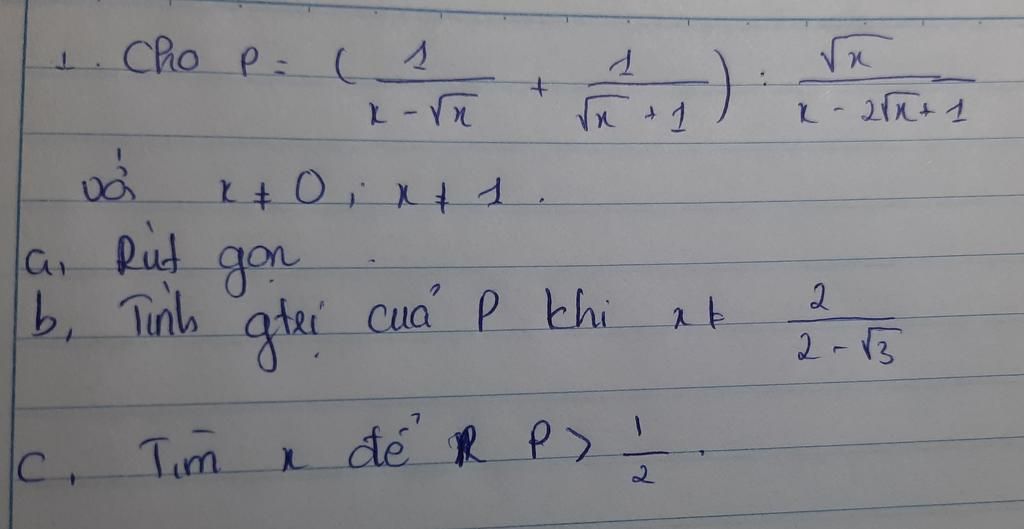 1. Cho P = ( 1/(x - √x) + 1/(√x + 1) ) : √x/(x - 2√x + 1)
với x ≠ 0 ; x ≠ 1 .
a, Rút gọn .
b, Tính gtrị của P khi x = 2/(2 - √3)
c, Tìm x để P > 1/2 .